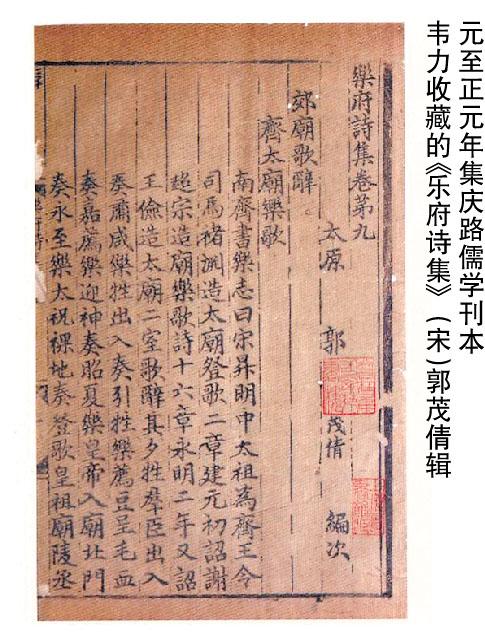 元至正元年集庆路儒学刊本
韦力收藏的《乐府诗集》（宋）郭茂倩辑
樂府詩集卷第九
太原 郭 茂倩 編次
郊廟歌辭
齊太廟樂歌
南齊書樂志曰宋昇明中太祖為齊王令
司馬褚淵造太廟登歌二章建元初詔謝
超宗造廟樂歌詩十六章永明二年又詔
王儉造太廟二室歌辭其夕牲羣臣出入
奏肅咸樂牲出入奏引牲樂薦豆呈毛血
奏嘉薦樂迎神奏昭夏樂皇帝入廟北門
奏永至樂太祝祼地奏登歌皇祖廟陵丞